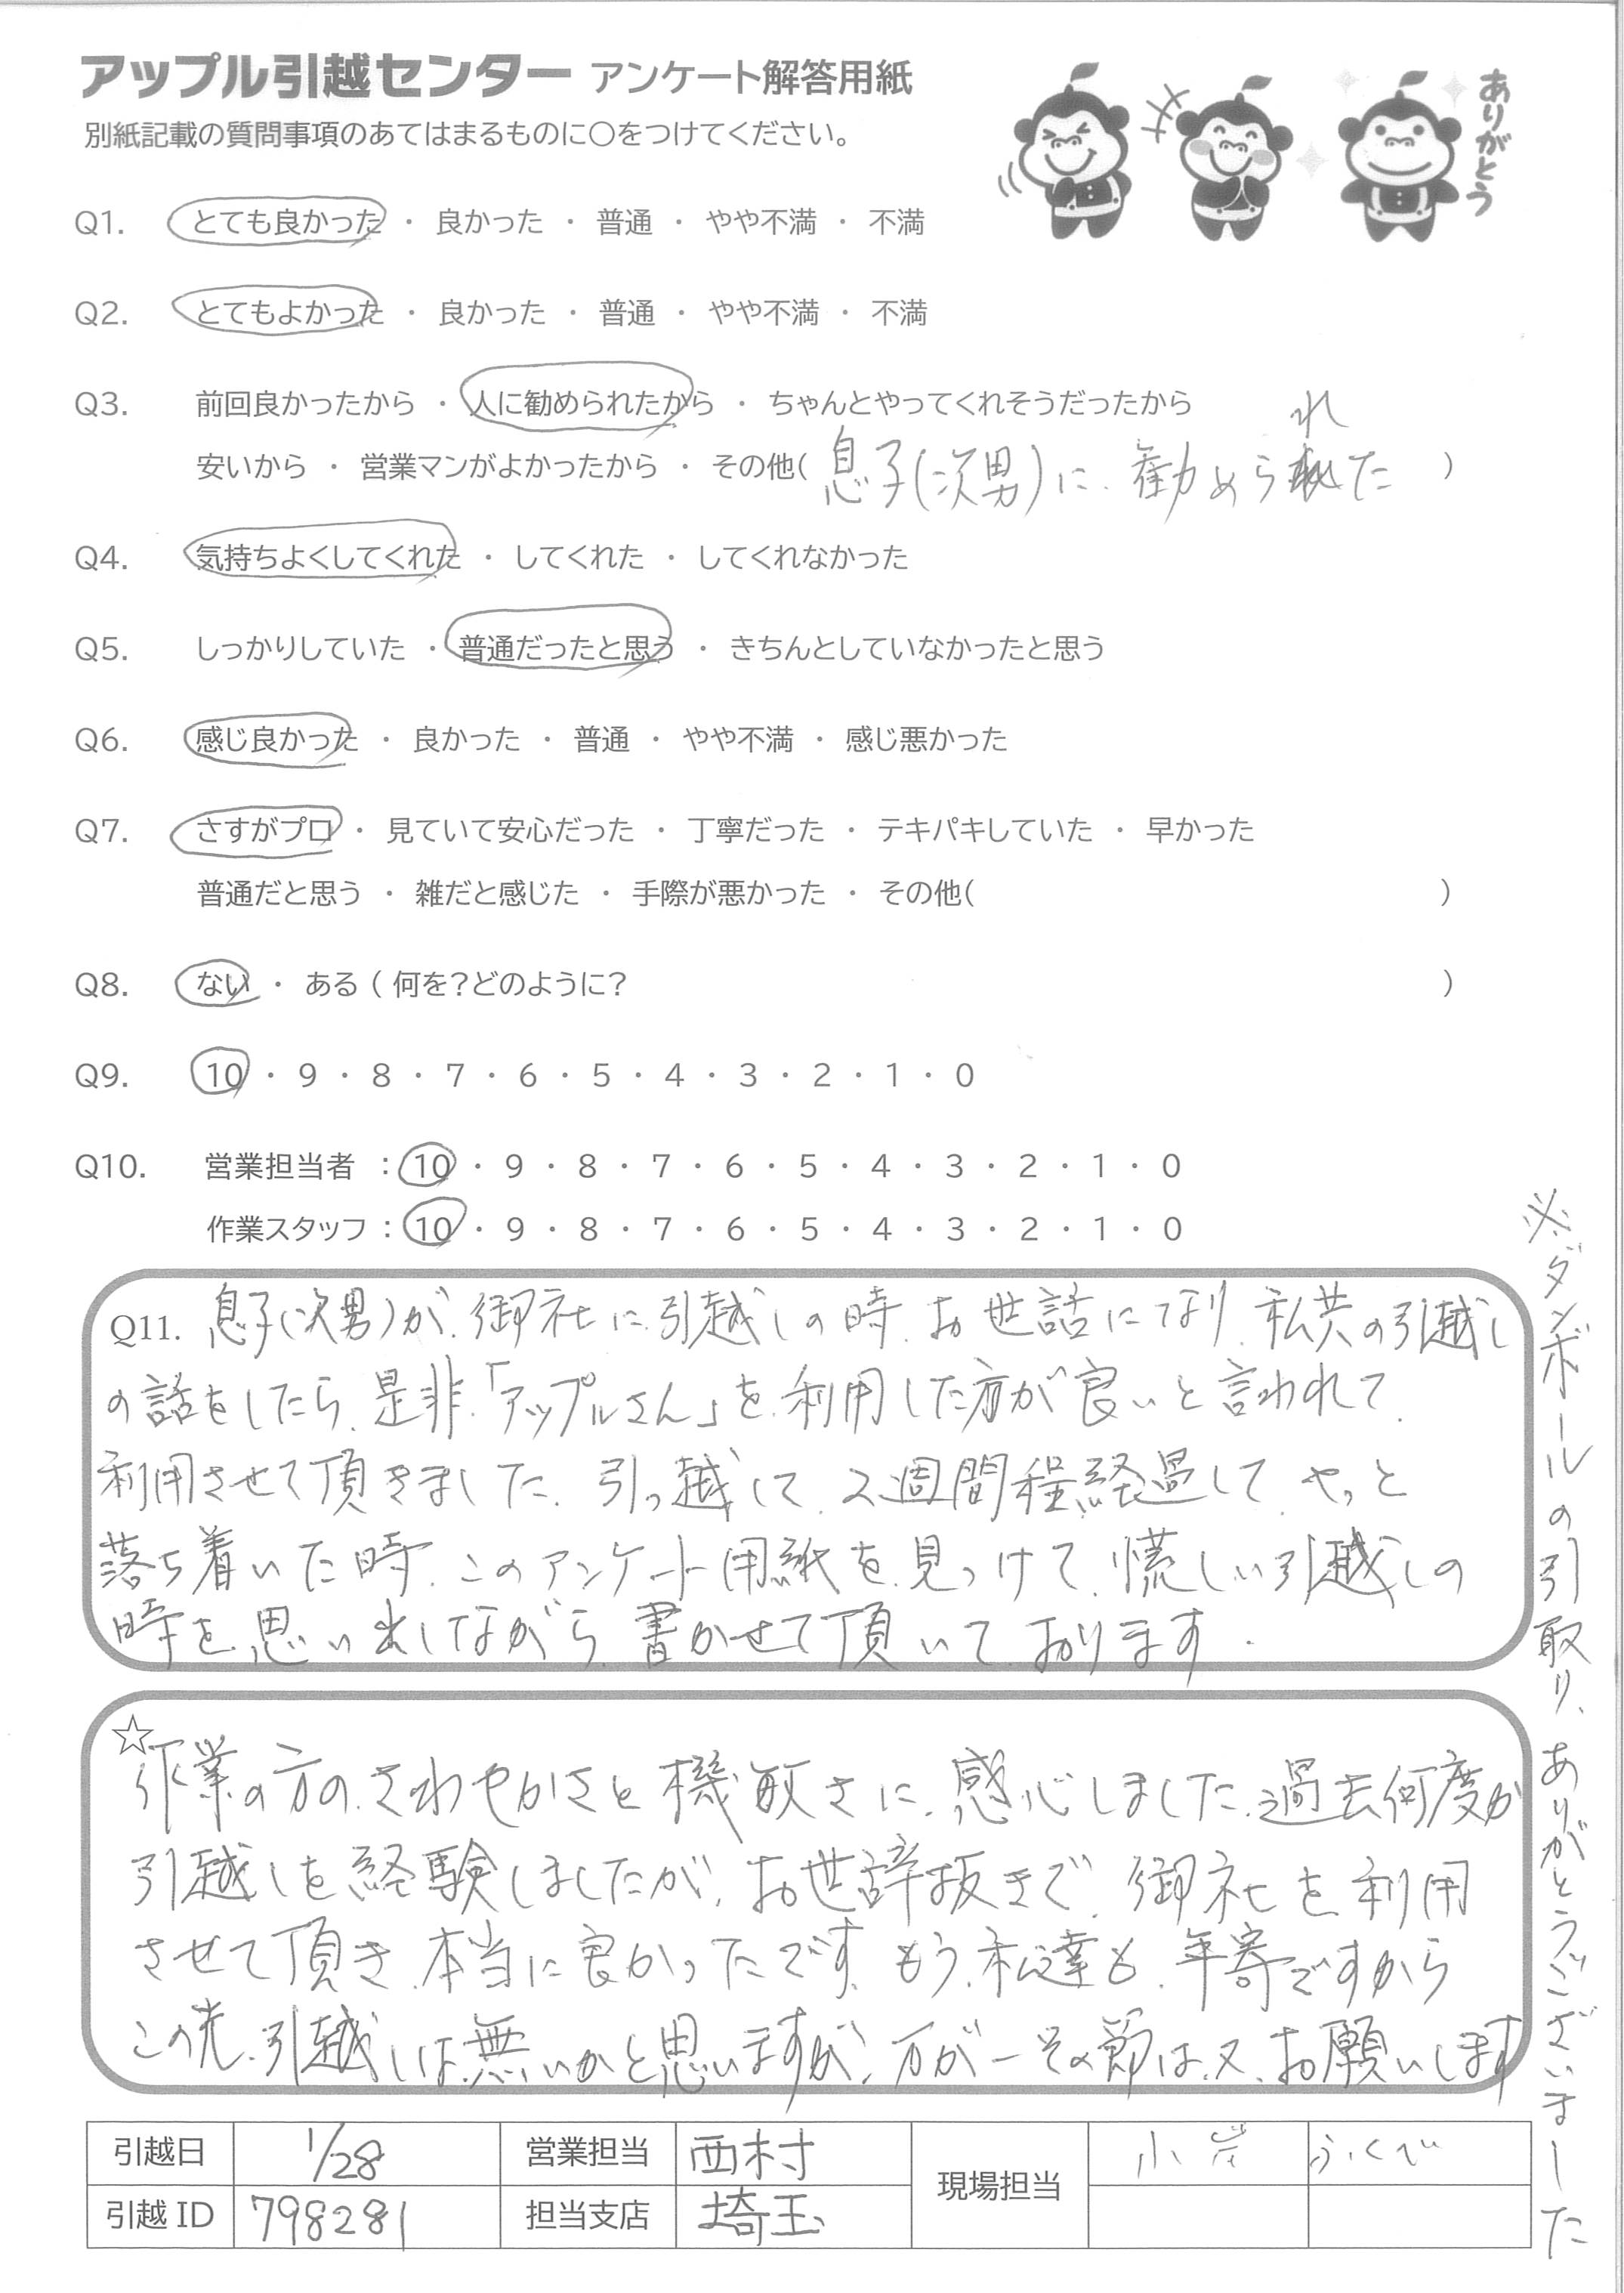 アップル引越センター アンケート解答用紙
ありがとう
別紙記載の質問事項のあてはまるものに○をつけてください。
Q1. とても良かった ・ 良かった ・ 普通 ・ やや不満 ・ 不満
Q2. とてもよかった ・ 良かった ・ 普通 ・ やや不満 ・ 不満
Q3. 前回良かったから ・ 人に勧められたから ・ ちゃんとやってくれそうだったから
安いから ・ 営業マンがよかったから ・ その他( 息子(次男)に勧められた )
Q4. 気持ちよくしてくれた ・ してくれた ・ してくれなかった
Q5. しっかりしていた ・ 普通だったと思う ・ きちんとしていなかったと思う
Q6. 感じ良かった ・ 良かった ・ 普通 ・ やや不満 ・ 感じ悪かった
Q7. さすがプロ ・ 見ていて安心だった ・ 丁寧だった ・ テキパキしていた ・ 早かった
普通だと思う ・ 雑だと感じた ・ 手際が悪かった ・ その他( )
Q8. ない ・ ある ( 何を?どのように? )
Q9. 10 ・ 9 ・ 8 ・ 7 ・ 6 ・ 5 ・ 4 ・ 3 ・ 2 ・ 1 ・ 0
Q10. 営業担当者 : 10 ・ 9 ・ 8 ・ 7 ・ 6 ・ 5 ・ 4 ・ 3 ・ 2 ・ 1 ・ 0
作業スタッフ : 10 ・ 9 ・ 8 ・ 7 ・ 6 ・ 5 ・ 4 ・ 3 ・ 2 ・ 1 ・ 0
Q11. 息子(次男)が、御社に引越しの時、お世話になり、私共の引越し
の話をしたら、是非「アップルさん」を利用した方が良いと言われて、
利用させて頂きました。引っ越して、2週間程経過して、やっと
落ち着いた時、このアンケート用紙を見つけて、慌しい引越しの
時を思い出しながら、書かせて頂いております。
☆
作業の方のさわやかさと機敏さに、感心しました。過去何度か
引越しを経験しましたが、お世辞抜きで、御社を利用
させて頂き、本当に良かったです。もう、私達も、年寄ですから
この先、引越しは無いかと思いますが、万が一その節は、又、お願いします
※ダンボールの引取り、ありがとうございました
引越日 1/28 営業担当 西村 現場担当 小岸 ふくべ
引越 ID 798281 担当支店 埼玉